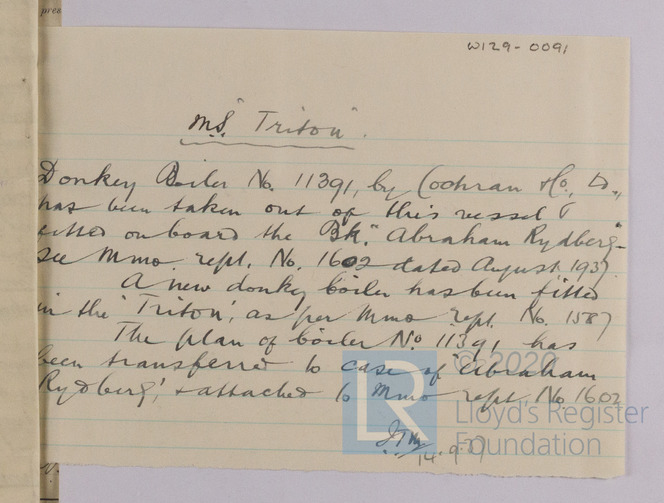 pres
W129-0091
M.S. "Triton".
Donkey Boiler No. 11391, by Cochran & Co., Ld.,
has been taken out of this vessel &
fitted onboard the Bk. "Abraham Rydberg"-
see Mmo. rept. No. 1602 dated August 1937.
A new donkey boiler has been fitted
in the "Triton", as per Mmo rept. No. 1587
The plan of boiler No 11391 has
been transferred to case of "Abraham
Rydberg", & attached to Mmo rept No 1602
14.9.37
© 2020
LR
Lloyd's Register
Foundation